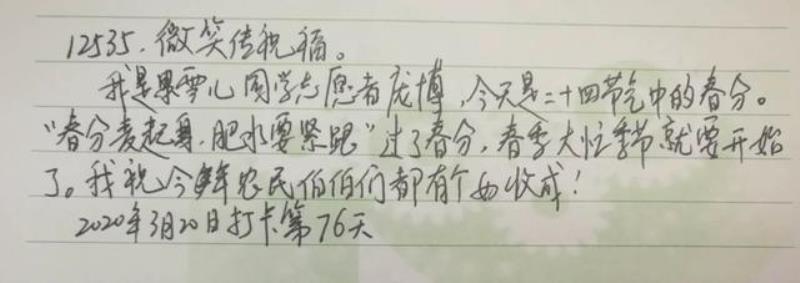 12535.微笑传祝福。
我是果雪儿同学志愿者庞博,今天是二十四节气中的春分。
“春分麦起身,肥水要紧跟”过了春分,春季大忙季节就要开始
了。我祝今年农民伯伯们都有个好收成!
2020年3月20日打卡第76天